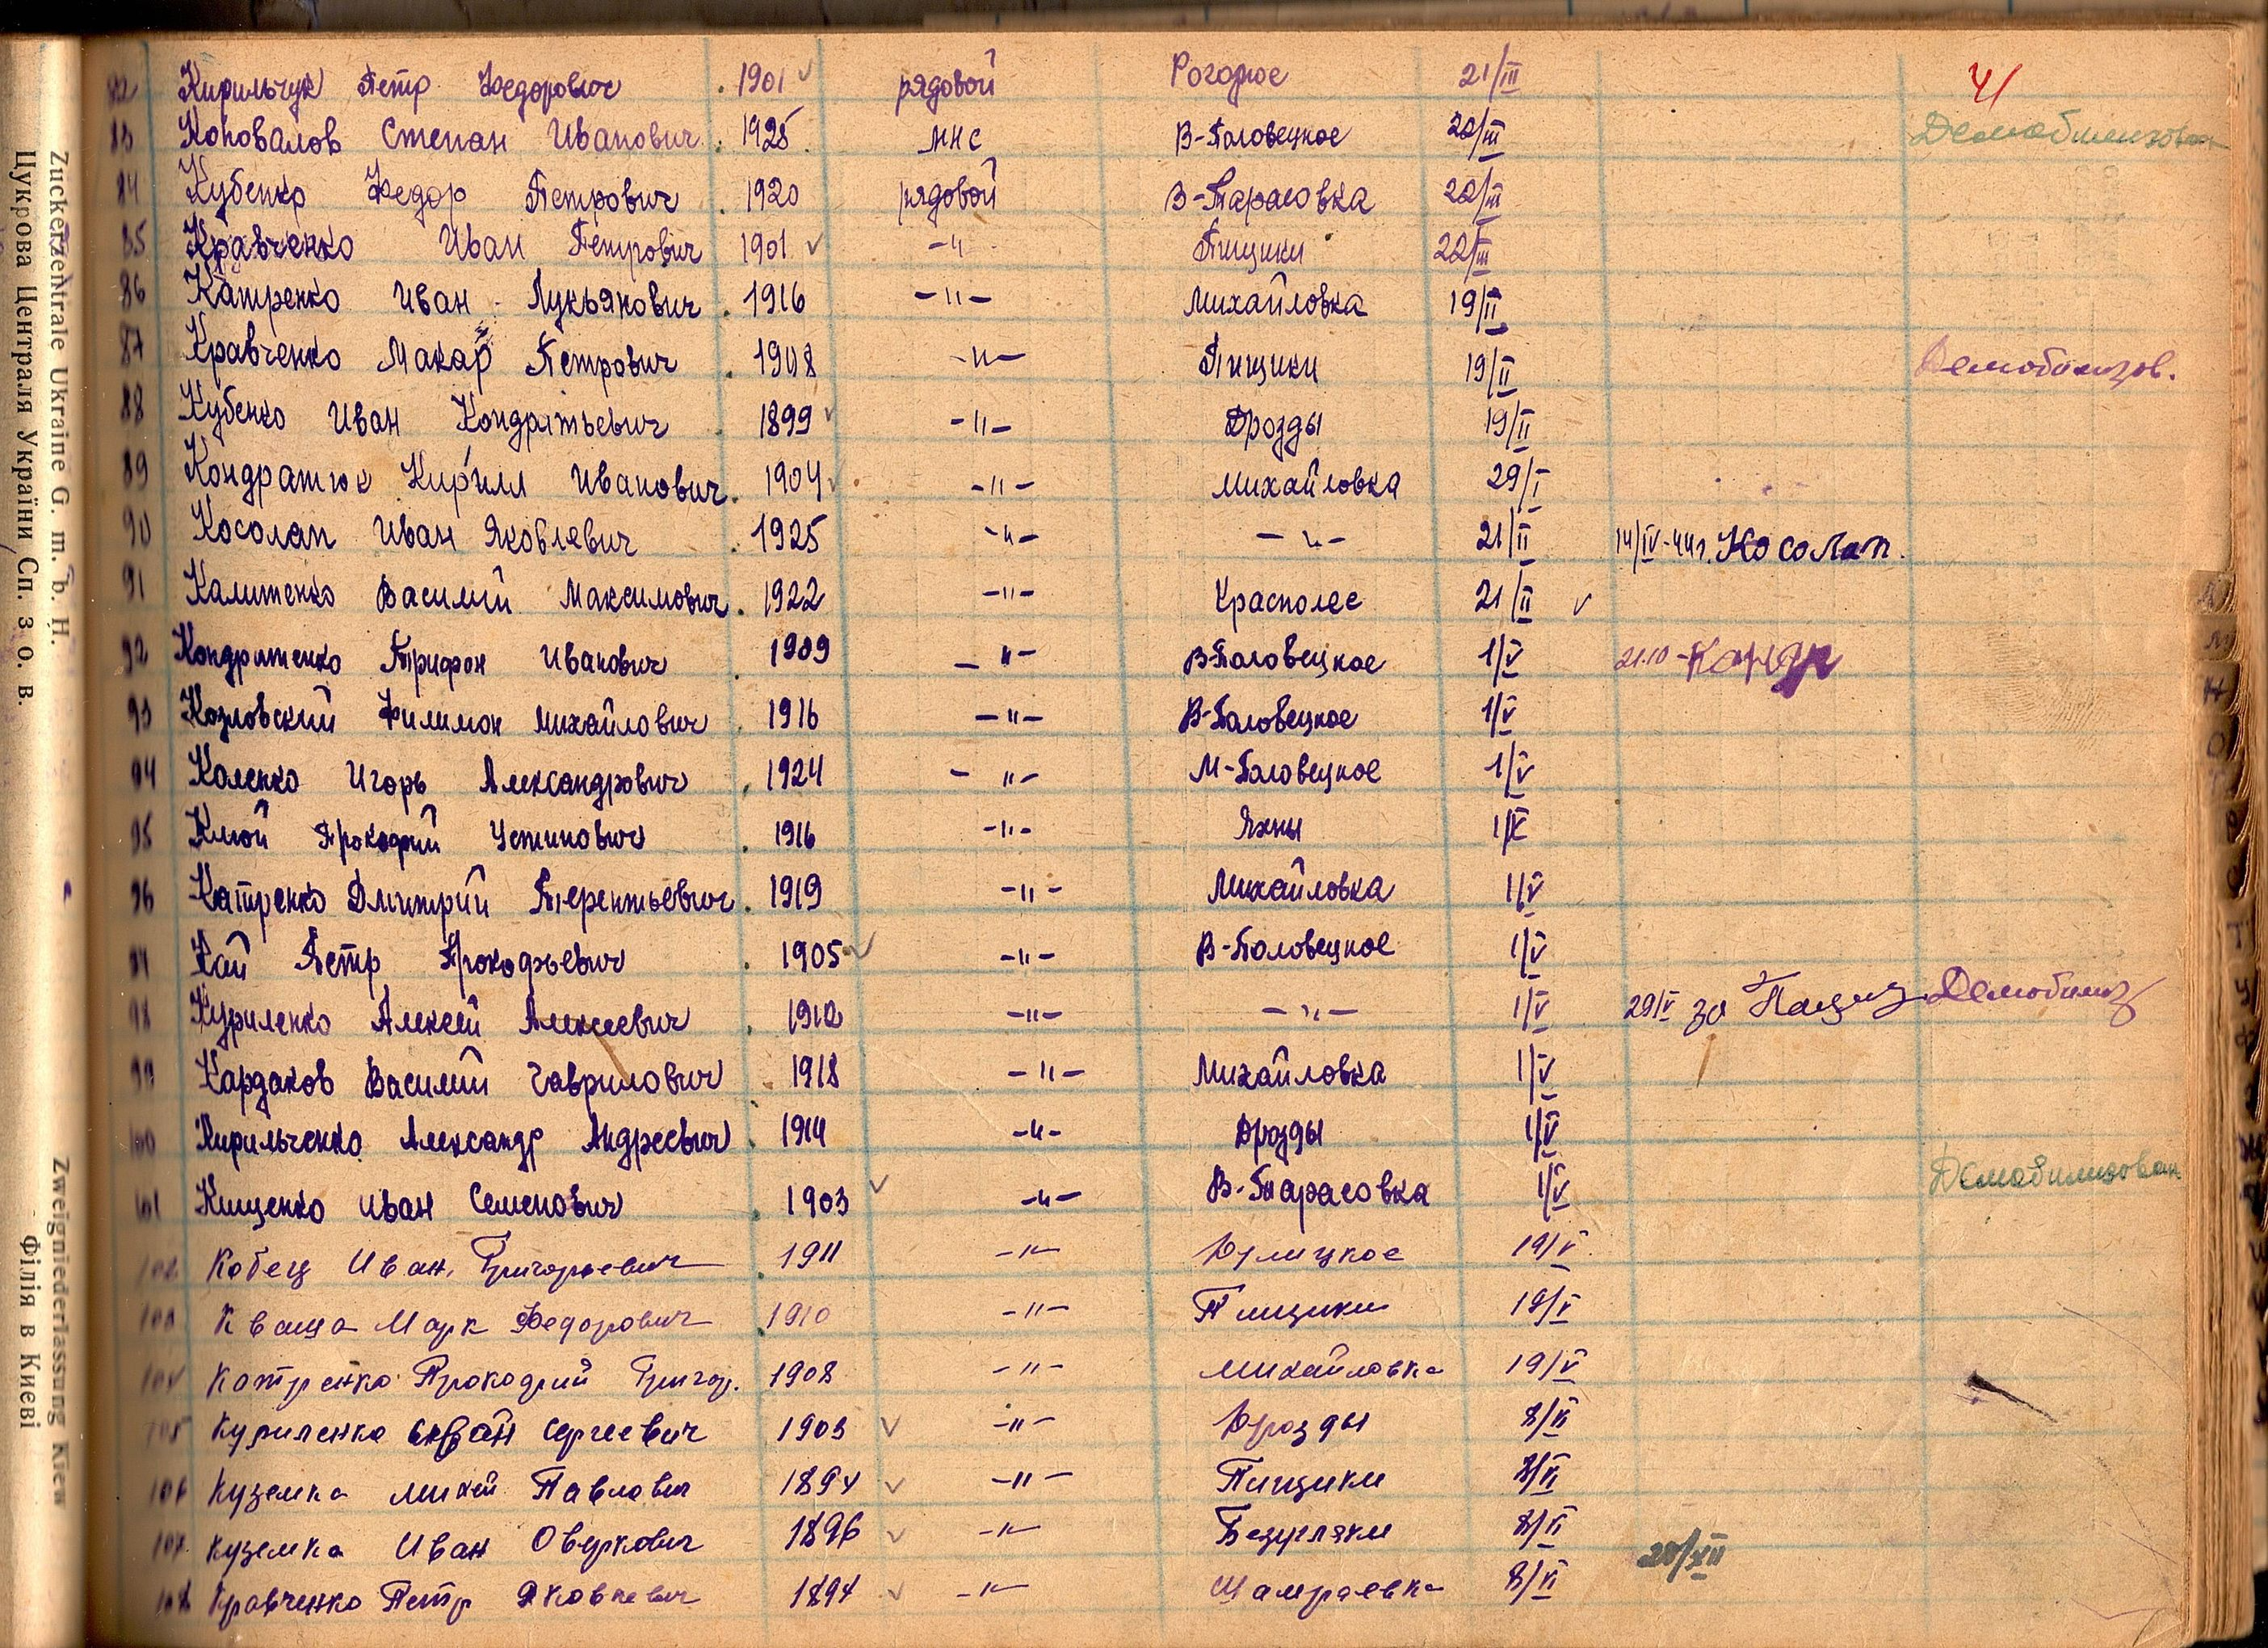 Zuckerzentrale Ukraine G. m. b. H. Zweigniederlassung Kiew
Цукрова Централя України Сп. з о. в. Філія в Києві
41
82 Кирильчук Петр Федорович 1901 рядовой Рогозное 21/III
83 Коновалов Степан Иванович 1925 мнс В-Половецкое 22/III Демобилизован
84 Кубенко Федор Петрович 1920 рядовой В-Тарасовка 22/III
85 Кравченко Иван Петрович 1901 -"- Пищики 22/III
86 Катренко Иван Лукьянович 1916 -"- Михайловка 19/II
87 Кравченко Макар Петрович 1908 -"- Пищики 19/II Демобилизов.
88 Кубенко Иван Кондратьевич 1899 -"- Дрозды 19/II
89 Кондратюк Кирилл Иванович 1904 -"- Михайловка 29/I
90 Косолап Иван Яковлевич 1925 -"- -"- 21/II 14/IV-44г. Косолап.
91 Калитенко Василий Максимович 1922 -"- Краснолес 21/II
92 Кондратенко Трифон Иванович 1909 -"- В-Половецкое 1/V 21.10-Кондр
93 Козловский Филимон Михайлович 1916 -"- В-Половецкое 1/V
94 Коленко Игорь Александрович 1924 -"- М-Половецкое 1/V
95 Клюй Прокофий Устинович 1916 -"- Яхны 1/V
96 Катренко Дмитрий Терентьевич 1919 -"- Михайловка 1/V
97 Кай Петр Прокофьевич 1905 -"- В-Половецкое 1/V
98 Куриленко Алексей Алексеевич 1912 -"- -"- 1/V 29/V за Демобилиз
99 Кардаков Василий Гаврилович 1918 -"- Михайловка 1/V
100 Кирильченко Александр Андреевич 1914 -"- Дрозды 1/V
101 Кищенко Иван Семенович 1903 -"- В-Тарасовка 1/V Демобилизован
102 Кобец Иван Григорьевич 1911 -"- 19/V
103 Кваша Марк Федорович 1910 -"- Пищики 19/V
104 Катренко Прокофий Григор. 1908 -"- Михайловка 19/V
105 Куриленко Сергеевич 1903 -"- Дрозды 8/VI
106 Куземка Михей Павлович 1894 -"- Пищики 8/VI
107 Куземка Иван Оверкович 1896 -"- Безугляки 8/VI 28/XII
108 Кравченко Петр Яковлевич 1894 -"- Шамраевка 8/VI